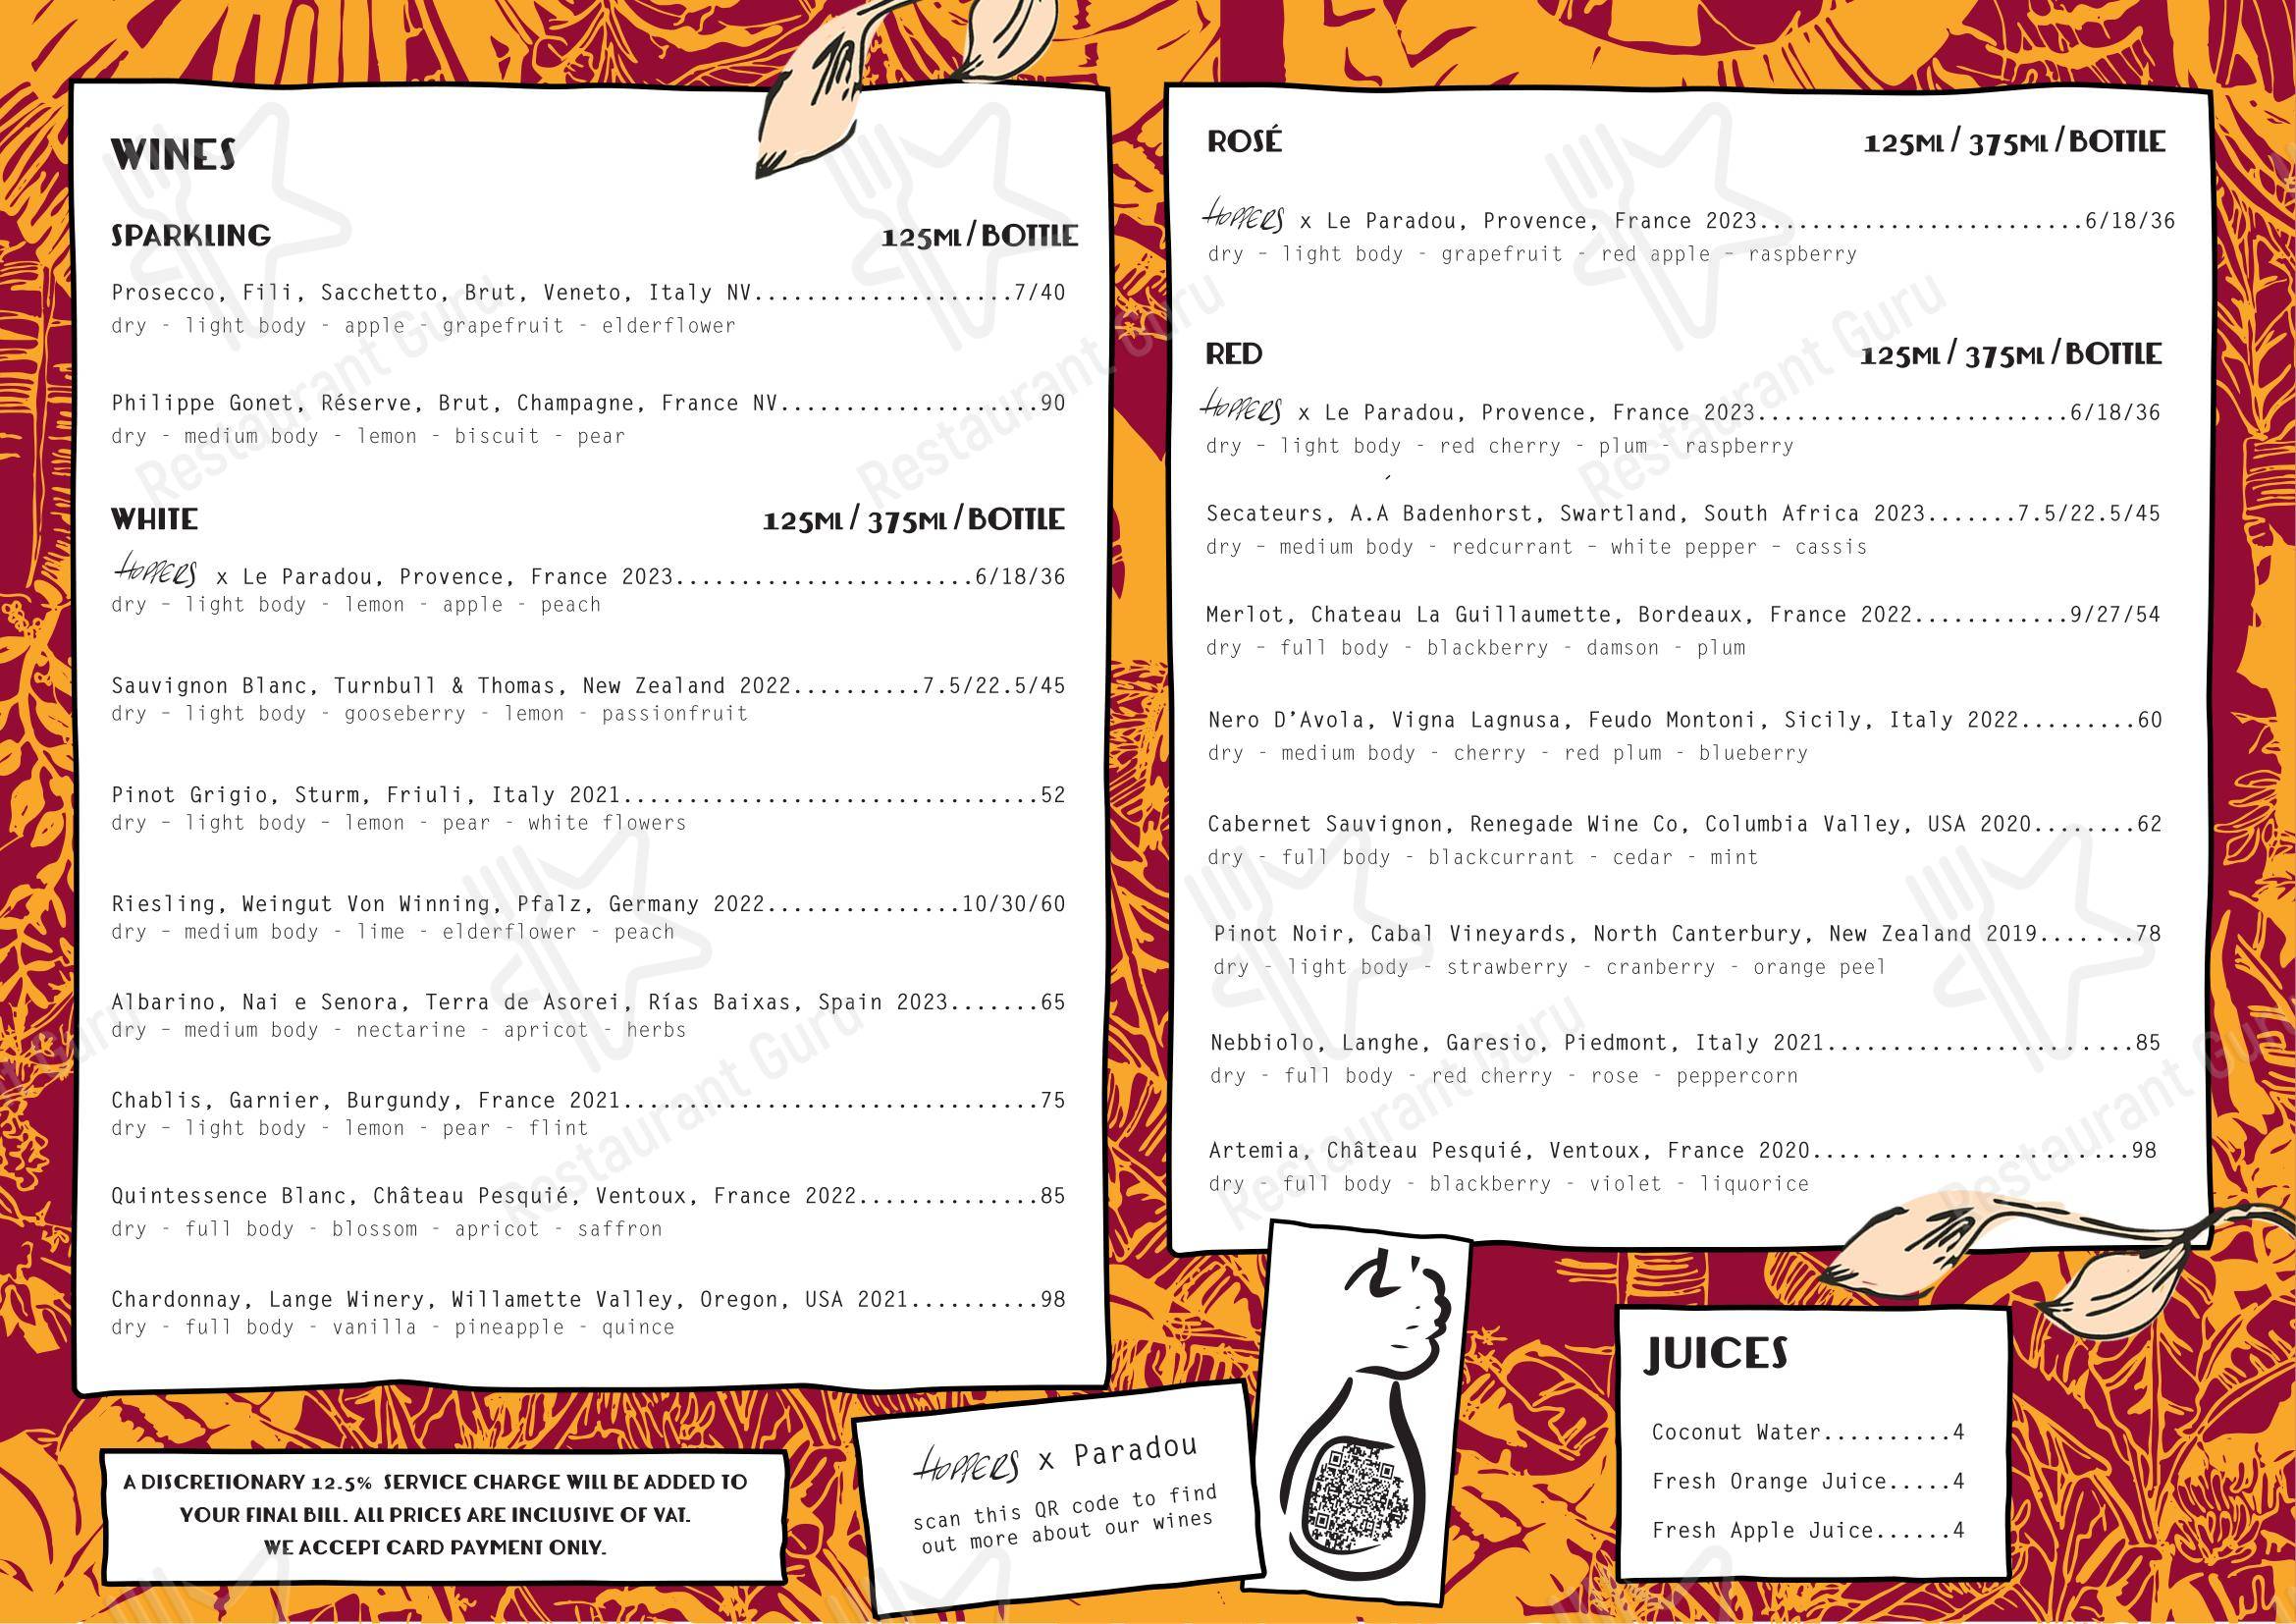 WINES
SPARKLING 125ML/BOTTLE
Prosecco, Fili, Sacchetto, Brut, Veneto, Italy NV....................7/40
dry - light body - apple - grapefruit - elderflower
Philippe Gonet, Réserve, Brut, Champagne, France NV....................90
dry - medium body - lemon - biscuit - pear
WHITE 125ML/ 375ML/BOTTLE
HOPPERS x Le Paradou, Provence, France 2023.......................6/18/36
dry - light body - lemon - apple - peach
Sauvignon Blanc, Turnbull & Thomas, New Zealand 2022..........7.5/22.5/45
dry - light body - gooseberry - lemon - passionfruit
Pinot Grigio, Sturm, Friuli, Italy 2021................................52
dry - light body - lemon - pear - white flowers
Riesling, Weingut Von Winning, Pfalz, Germany 2022...............10/30/60
dry - medium body - lime - elderflower - peach
Albarino, Nai e Senora, Terra de Asorei, Rías Baixas, Spain 2023.......65
dry - medium body - nectarine - apricot - herbs
Chablis, Garnier, Burgundy, France 2021................................75
dry - light body - lemon - pear - flint
Quintessence Blanc, Château Pesquié, Ventoux, France 2022..............85
dry - full body - blossom - apricot - saffron
Chardonnay, Lange Winery, Willamette Valley, Oregon, USA 2021..........98
dry - full body - vanilla - pineapple - quince
ROSÉ 125ML/ 375ML/BOTTLE
HOPPERS x Le Paradou, Provence, France 2023.........................6/18/36
dry - light body - grapefruit - red apple - raspberry
RED 125ML/ 375ML/BOTTLE
HOPPERS x Le Paradou, Provence, France 2023........................6/18/36
dry - light body - red cherry - plum - raspberry
Secateurs, A.A Badenhorst, Swartland, South Africa 2023.......7.5/22.5/45
dry - medium body - redcurrant - white pepper - cassis
Merlot, Chateau La Guillaumette, Bordeaux, France 2022............9/27/54
dry - full body - blackberry - damson - plum
Nero D’Avola, Vigna Lagnusa, Feudo Montoni, Sicily, Italy 2022.........60
dry - medium body - cherry - red plum - blueberry
Cabernet Sauvignon, Renegade Wine Co, Columbia Valley, USA 2020........62
dry - full body - blackcurrant - cedar - mint
Pinot Noir, Cabal Vineyards, North Canterbury, New Zealand 2019.......78
dry - light body - strawberry - cranberry - orange peel
Nebbiolo, Langhe, Garesio, Piedmont, Italy 2021........................85
dry - full body - red cherry - rose - peppercorn
Artemia, Château Pesquié, Ventoux, France 2020.......................98
dry - full body - blackberry - violet - liquorice
A DISCRETIONARY 12.5% SERVICE CHARGE WILL BE ADDED TO
YOUR FINAL BILL. ALL PRICES ARE INCLUSIVE OF VAT.
WE ACCEPT CARD PAYMENT ONLY.
HOPPERS x Paradou
scan this QR code to find
out more about our wines
JUICES
Coconut Water..........4
Fresh Orange Juice.....4
Fresh Apple Juice......4
Restaurant Guru
Restaurant Guru
Restaurant Guru
Restaurant Guru
Restaurant Guru
Restaurant Guru